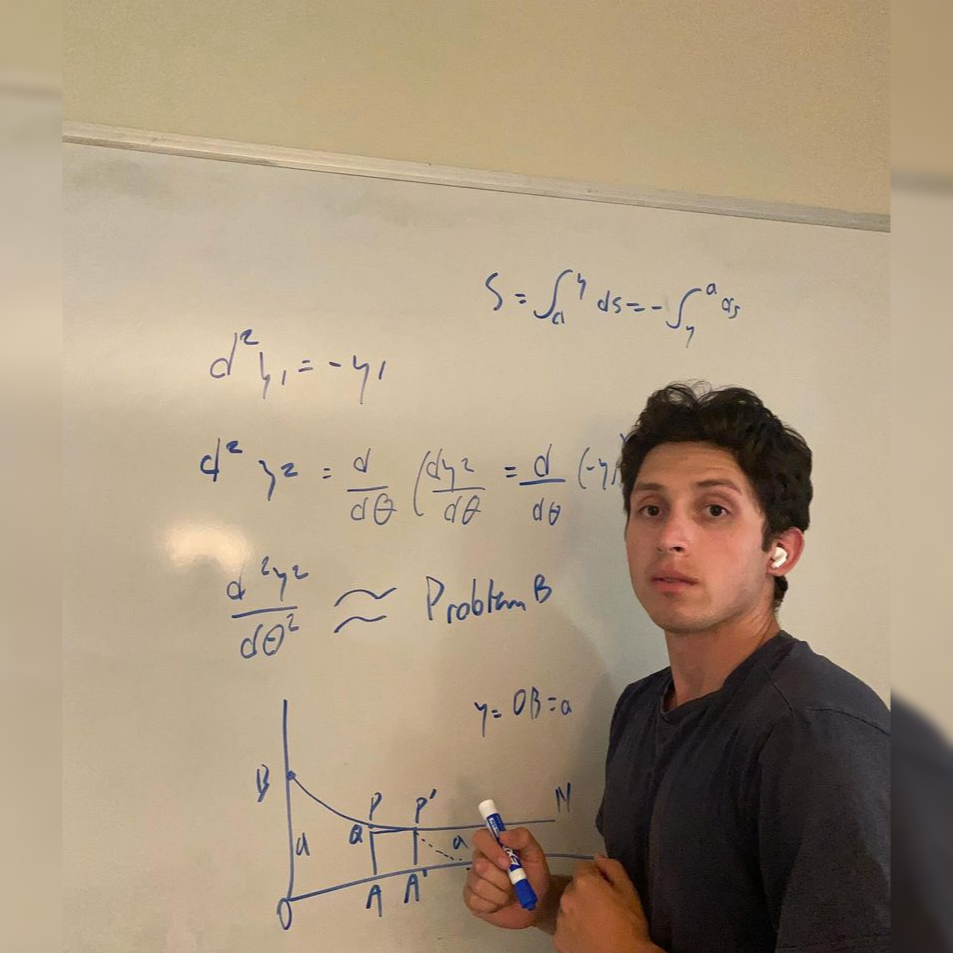 S = ∫ₐʸ ds = - ∫ᵧᵃ ds
d² y₁ = - y₁
d² y₂ = d/dθ (dy₂/dθ = d/dθ (-y₁
d²y₂/dθ² ≈ Problem B
y = OB = a
B
P P' N
Q
a
a
A A'
O